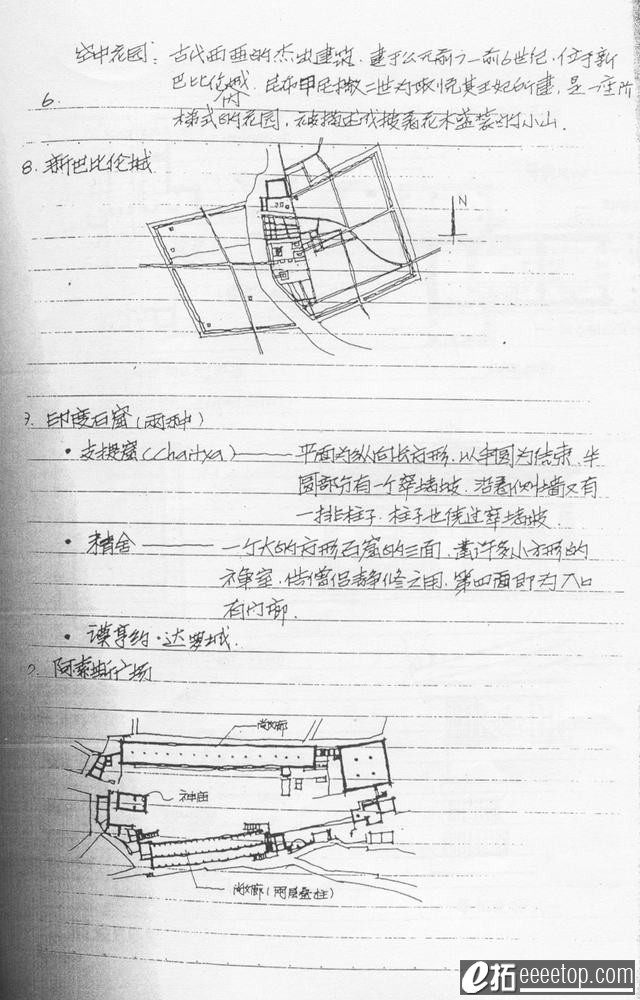 空中花园：古代西亚的杰出建筑．建于公元前7—前6世纪．位于新
巴比伦城内．尼布甲尼撒二世为取悦其王妃所建，是一座阶
6.
梯式的花园，被描述成披着花木盛装的小山．
8. 新巴比伦城
N
7. 印度石窟（两种）
• 支提窟（Chaitya）—— 平面为纵向长方形．以半圆为结束．半
圆部分有一个窣堵坡．沿着侧墙又有
一排柱子．柱子也绕过窣堵坡．
• 精舍 —— 一个大的方形石窟的三面，凿许多小方形的
禅室，供僧侣静修之用，第四面即为入口
有门廊．
• 谟亨约·达罗城．
阿索斯广场
敞廊
神庙
敞廊（两层叠柱）
e拓 eeeetop.com